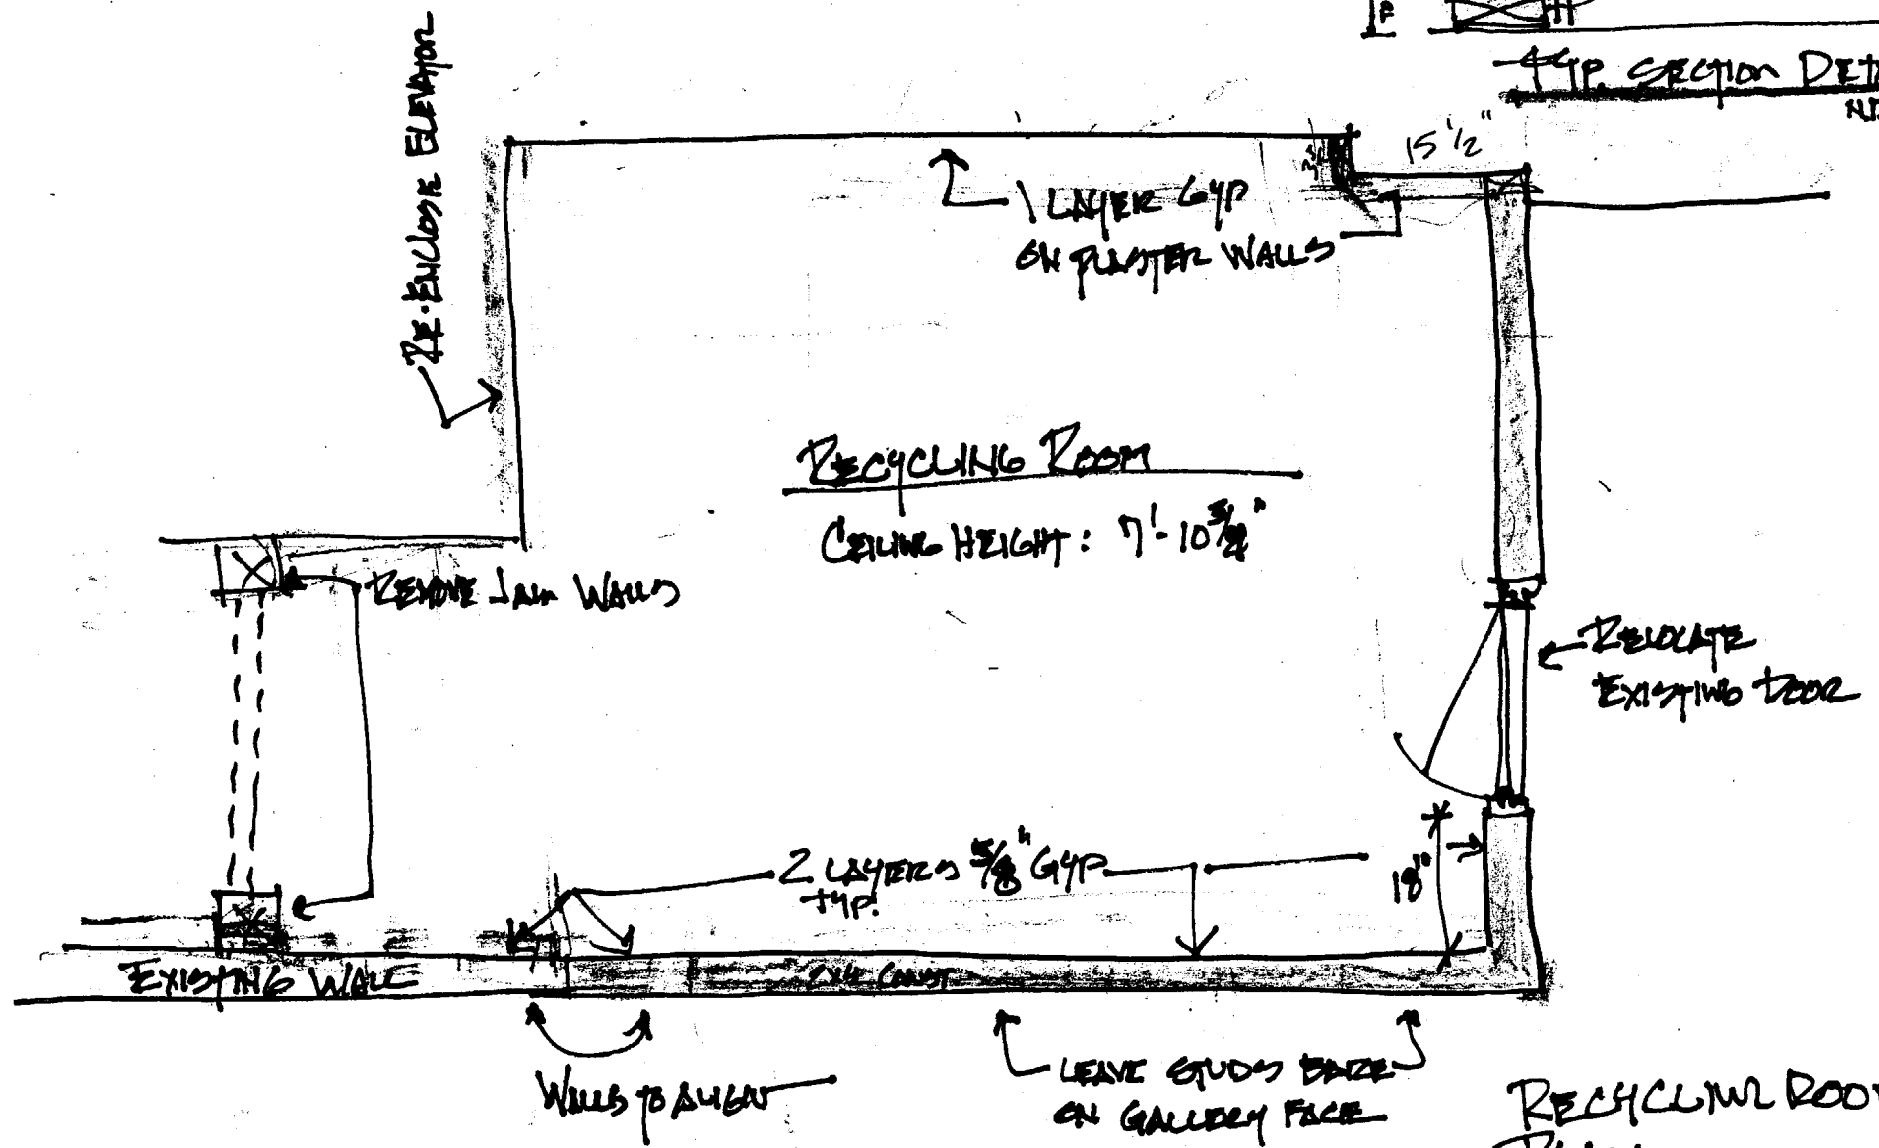 TYP. SECTION DET
15 1/2"
RE-ENCLOSE ELEVATOR
1 LAYER GYP
ON PLASTER WALLS
RECYCLING ROOM
CEILING HEIGHT: 7'-10 3/4"
REMOVE JAM WALLS
RELOCATE
EXISTING DOOR
2 LAYERS 5/8" GYP.
TYP.
18"
EXISTING WALL
2x4 CONST
WALLS TO ALIGN
LEAVE STUDS BARE
ON GALLERY FACE
RECYCLING ROO